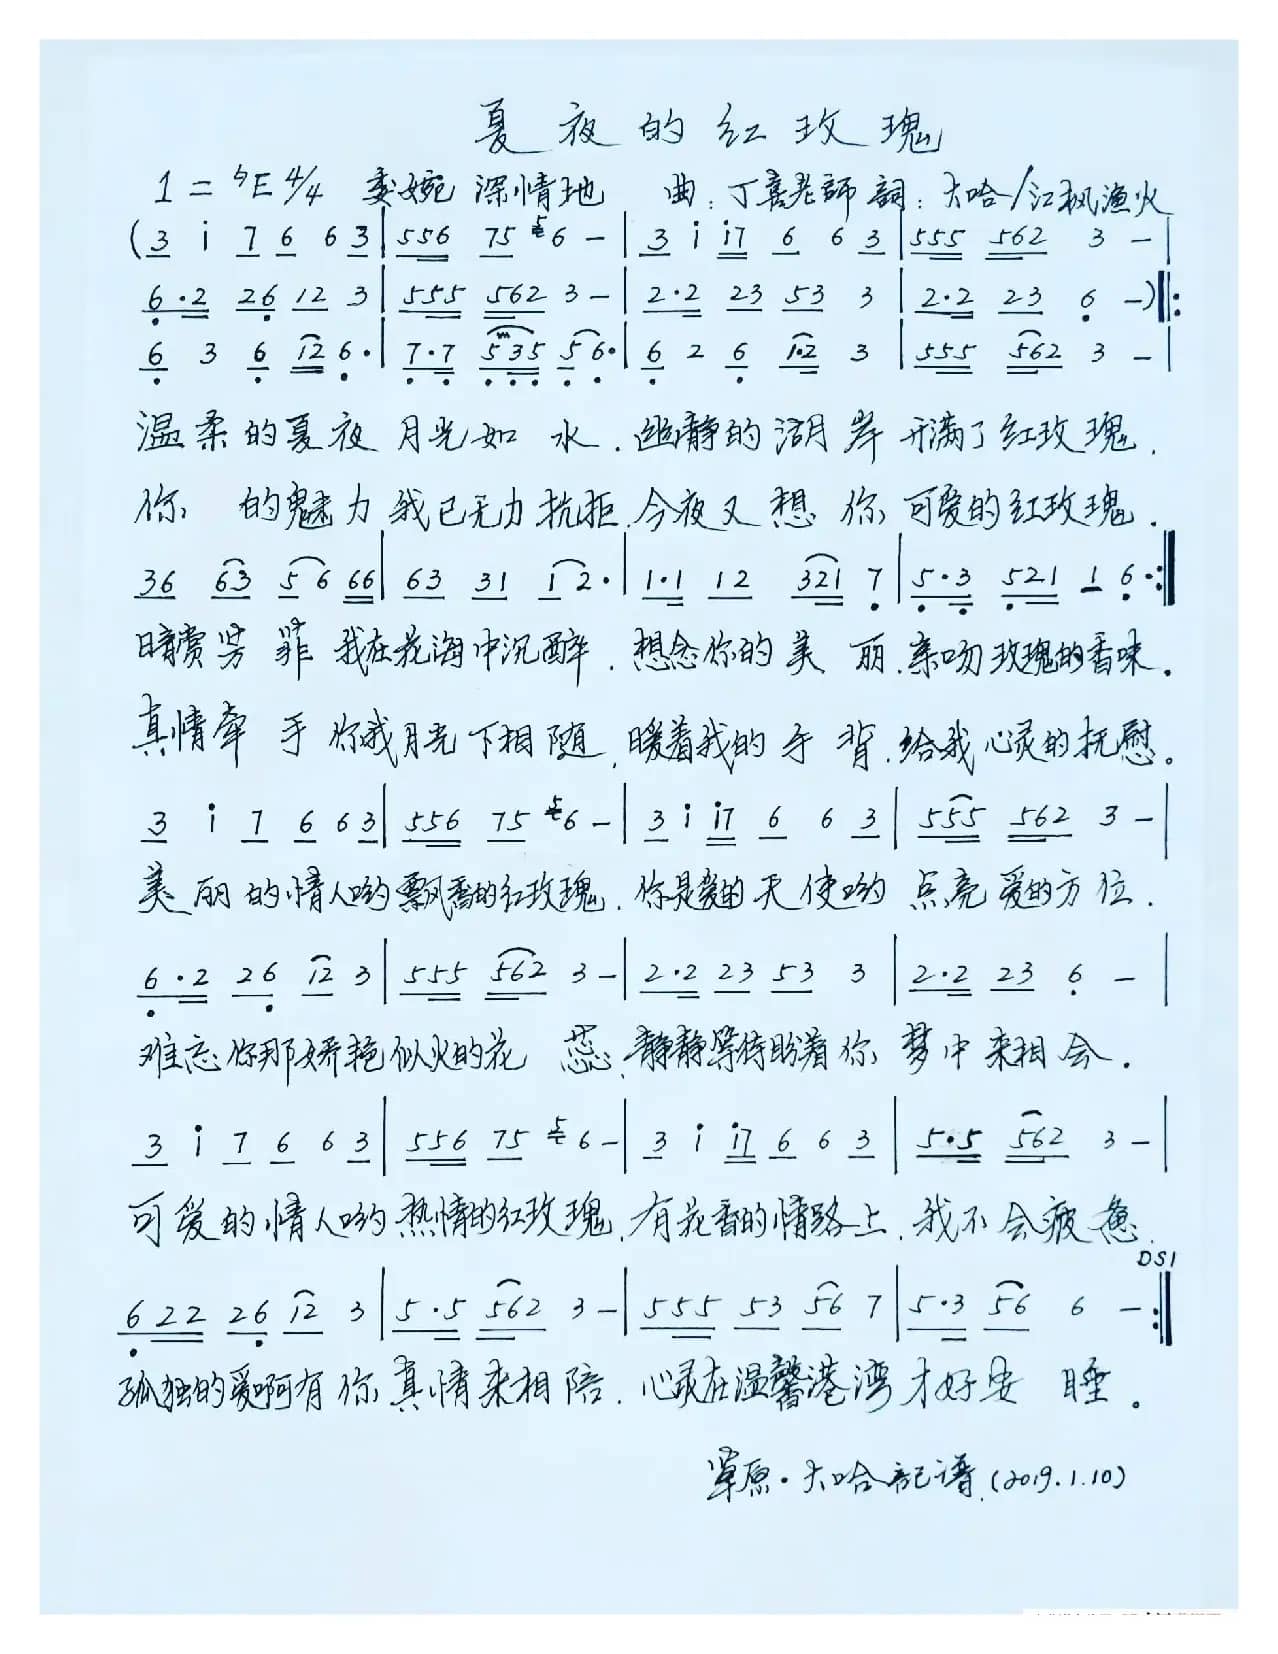 夏夜的红玫瑰
1=♭E 4/4 委婉 深情地 曲:丁喜老師 詞:大哈/江枫渔火
(3 i 7 6 6 3|556 75 56-|3 i i7 6 6 3|555 562 3-|
6·2 26 12 3|555 562 3-|2·2 23 53 3|2·2 23 6-)‖:
6 3 6 12 6·|7·7 535 56·|6 2 6 1·2 3|555 562 3-|
温柔的夏夜月光如水.幽静的湖岸开满了红玫瑰.
你的魅力我已无力抗拒.今夜又想你可爱的红玫瑰.
36 63 56 66|63 31 12·|1·1 12 321 7|5·3 521 1 6·:‖
暗赏芳菲我在花海中沉醉.想念你的美丽.亲吻玫瑰的香味。
真情牵手你我月光下相随,暖着我的手背.给我心灵的抚慰。
3 i 7 6 6 3|556 75 56-|3 i i7 6 6 3|555 562 3-|
美丽的情人哟飘香的红玫瑰.你是爱的天使哟点亮爱的方位.
6·2 26 12 3|555 562 3-|2·2 23 53 3|2·2 23 6-|
难忘你那娇艳似火的花蕊.静静等待盼着你梦中来相会.
3 i 7 6 6 3|556 75 56-|3 i i7 6 6 3|5·5 562 3-|
可爱的情人哟热情的红玫瑰.有花香的情路上.我不会疲惫.
DS1
622 26 12 3|5·5 562 3-|555 53 56 7|5·3 56 6-:‖
孤独的爱啊有你真情来相陪.心灵在温馨港湾才好安睡。
草原·大哈記谱.(2019.1.10)